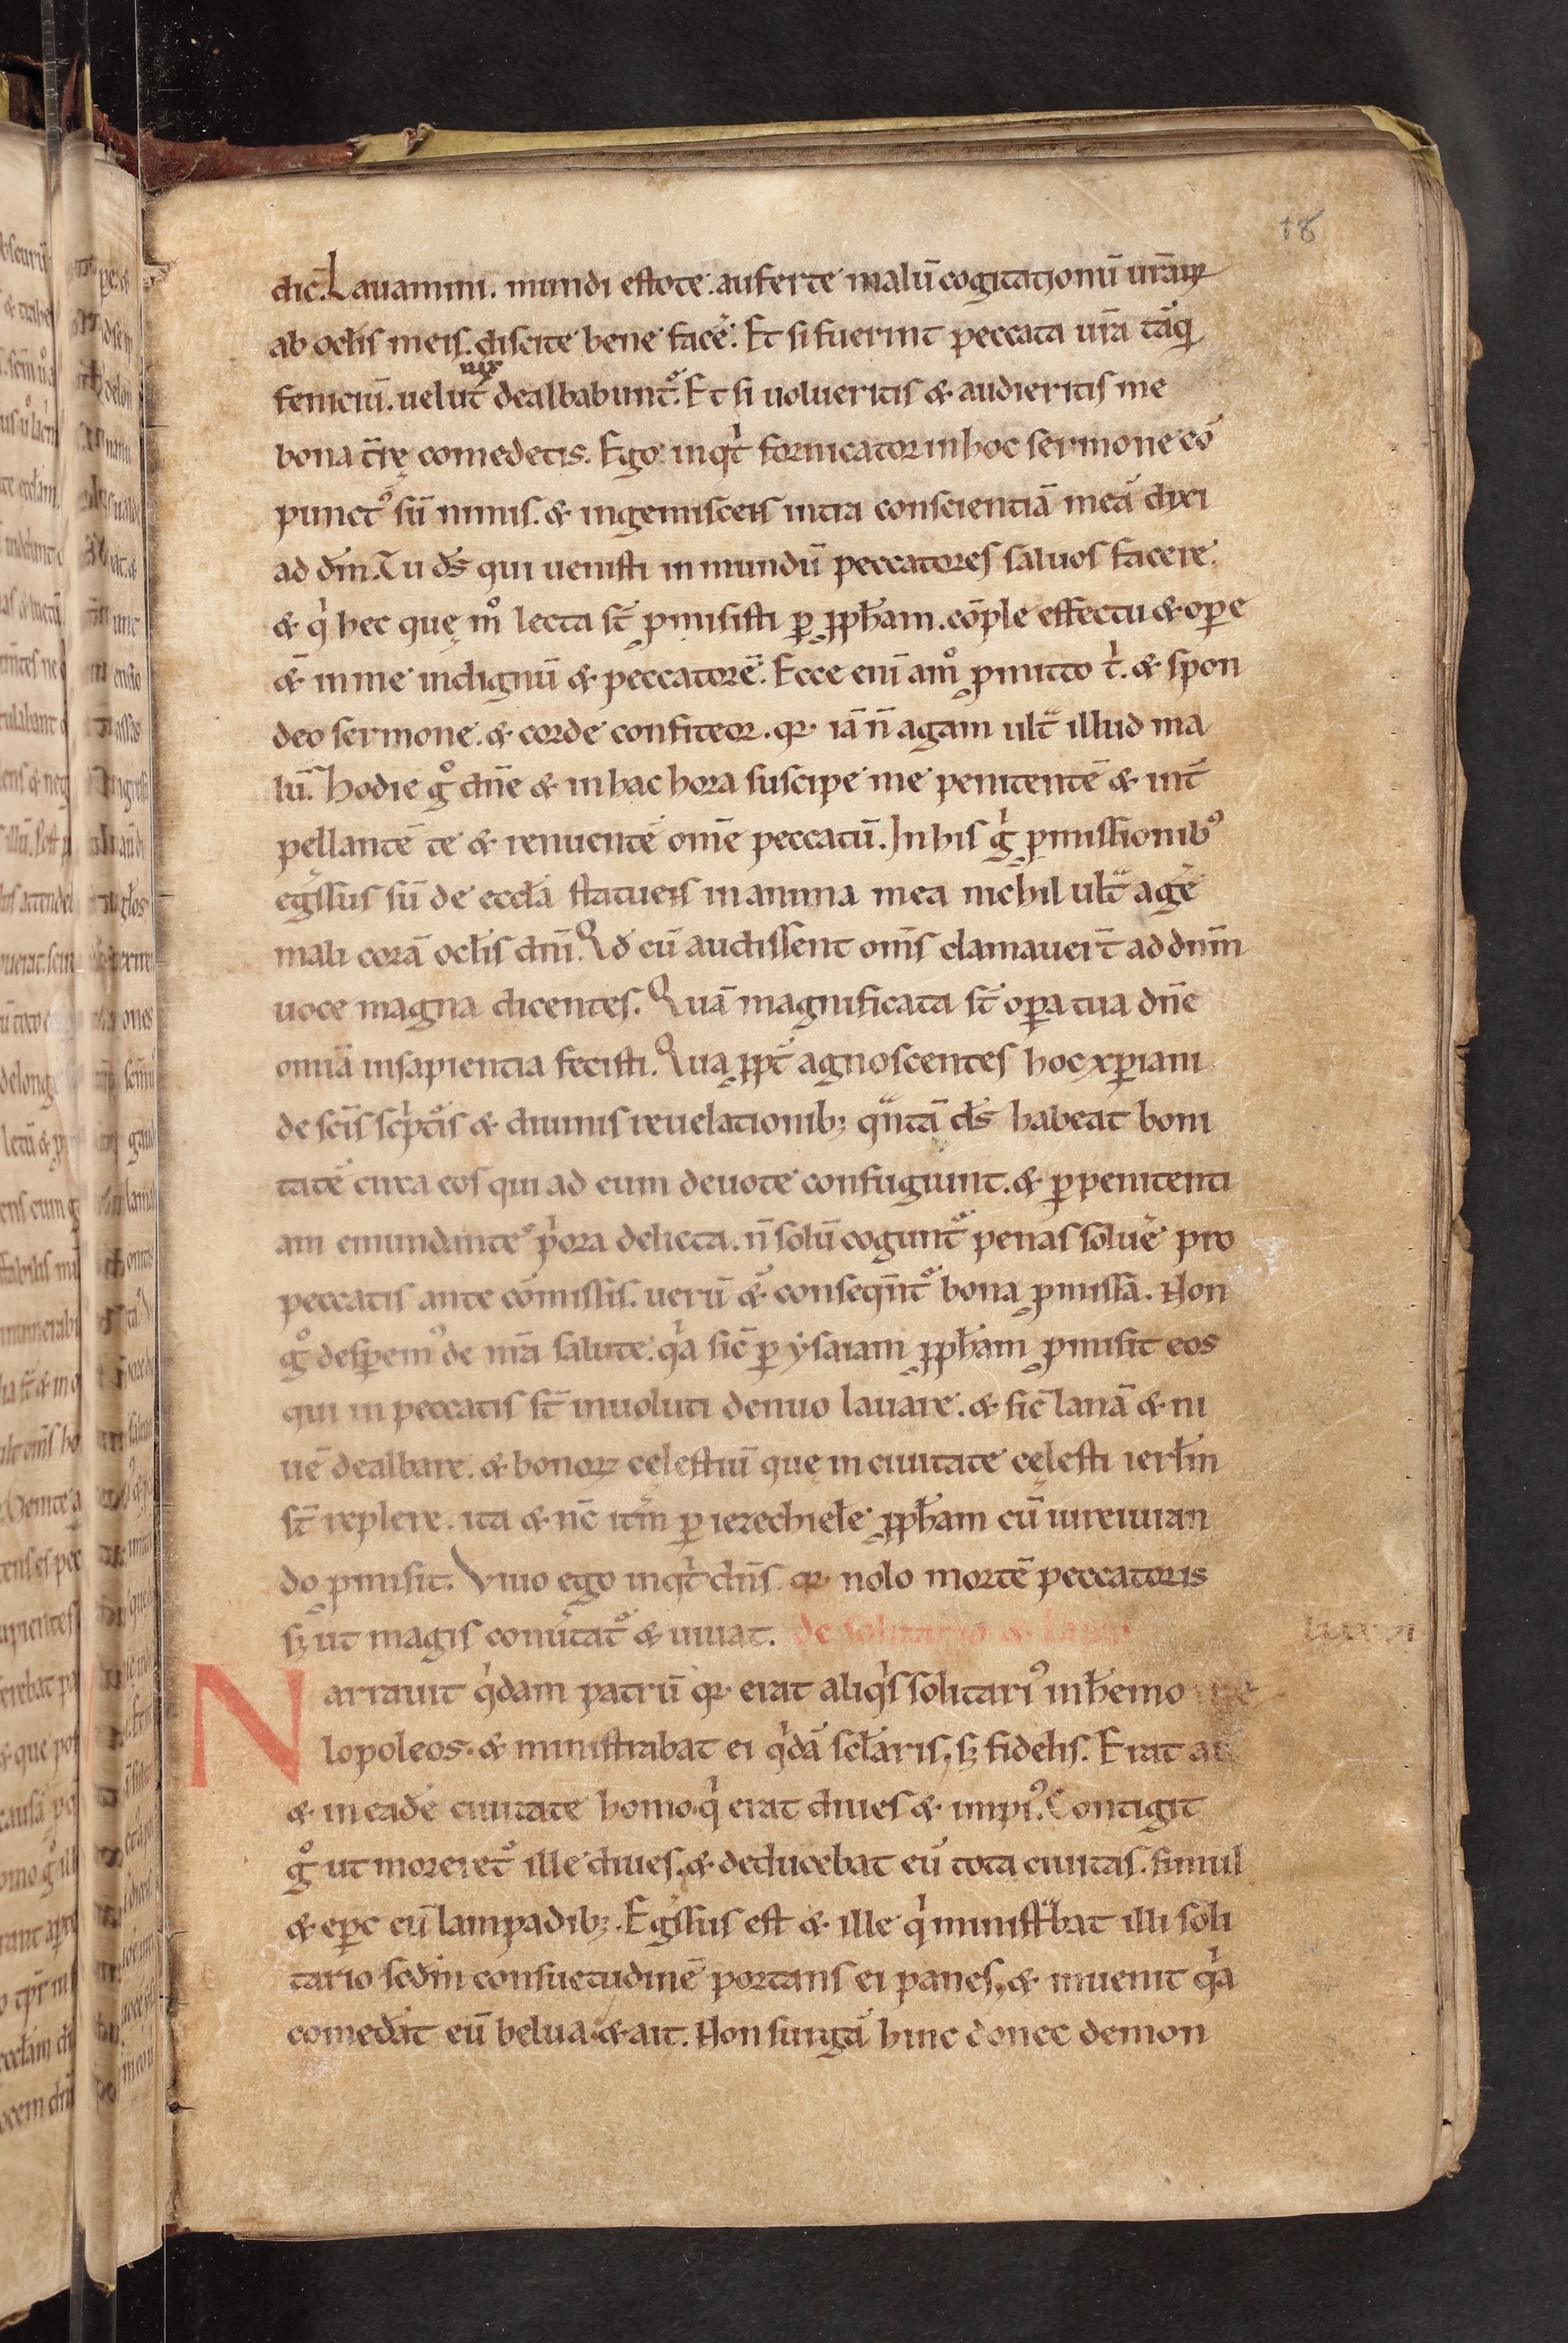 18
dic̄. Lauamini. mundi estote. auferte malū cogitationū urāꝝ
ab oclīs meis. discite bene facē. Et si fuerint peccata urā tāq̄
feniciū. uelut nix dealbabunt᷑. Et si uolueritis & audieritis me
bona tr̄ę comedetis. Ego inqͥt fornicator in hoc sermone cō
punctꝰ sū nimis. & ingemiscens intra conscientiā meā dixi
ad dm̄. Tu ds̄ qui uenisti in mundū peccatores saluos facere.
& qͥ hec quę mͦ lecta st̄ ꝓmisisti ꝑ ꝓph̄am. cōple effectu & oꝑe
& in me indignū & peccatorē. Ecce enī amͦ ꝓmitto tͥ. & spon
deo sermone. & corde confiteor. qꝛ iā n̄ agam ultᷓ illud ma
lū. Hodie gͦ dn̄e & in hac hora suscipe me penitentē & int̄
pellantē te & renuentē om̄e peccatū. In his gͥ ꝓmissionibꝰ
egͥssus sū de eccl̄a statuens in anima mea nichil ultᷓ agē
mali corā ocl̄is dn̄i. Qd̄ cū audissent om̄s clamauert̄ ad dn̄m
uoce magna dicentes. Quā magnificata st̄ oꝑa tua dn̄e
omīa in sapientia fecisti. Qua ꝓpt̄ agnoscentes hoc xp̄iani
de scīs scͥptis & diuinis reuelationibꝫ qᷓntā ds̄ habeat boni
tatē circa eos qui ad eum deuote confugiunt. & ꝑ penitenti
am emundantē pͥora delicta. n̄ solū cogunt᷑ penas soluē pro
peccatis ante cōmissis. uerū & conseqūt᷑ bona ꝓmissa. Non
gͦ desꝑemꝰ de nr̄a salute. qͥa sic̄ ꝑ ysaiam ꝓph̄am ꝓmisit eos
qui in peccatis st̄ inuoluti denuo lauare. & sic̄ lanā & ni
uē dealbare. & bonoꝝ cęlestiū quę in ciuitate cęlesti ierl̄m
st̄ replere. ita & nc̄ itm̄ ꝑ iezechielē ꝓph̄am cū iureiuran
do ꝓmisit. Viuo ego inqͥt dn̄s. qꝛ nolo mortē peccatoris
sꝫ ut magis conūtat᷑ & uiuat. de solitario &
Narrauit qͥdam patrū qꝛ erat aliqͥs solitariꝰ in h̄emo
lopoleos. & ministrabat ei qͥdā scl̄aris, sꝫ fidelis. Erat
& in eadē ciuitate homo. qͥ erat diues & impiꝰ. Contigit
gͦ ut moreret᷑ ille diues. & deducebat eū tota ciuitas. simul
& ep̄c cū lampadibꝫ. Egͥssus est & ille qͥ ministᷓbat illi soli
tario scd̄m consuetudinē portans ei panes, & inuenit qͥa
comedāt eū belua. & ait. Non surgā hinc donec demon